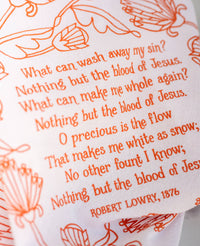 What can wash away my sin?
Nothing but the blood of Jesus.
What can make me whole again?
Nothing but the blood of Jesus.
O precious is the flow
That makes me white as snow;
No other fount I know,
Nothing but the blood of Jesu
ROBERT LOWRY, 1876